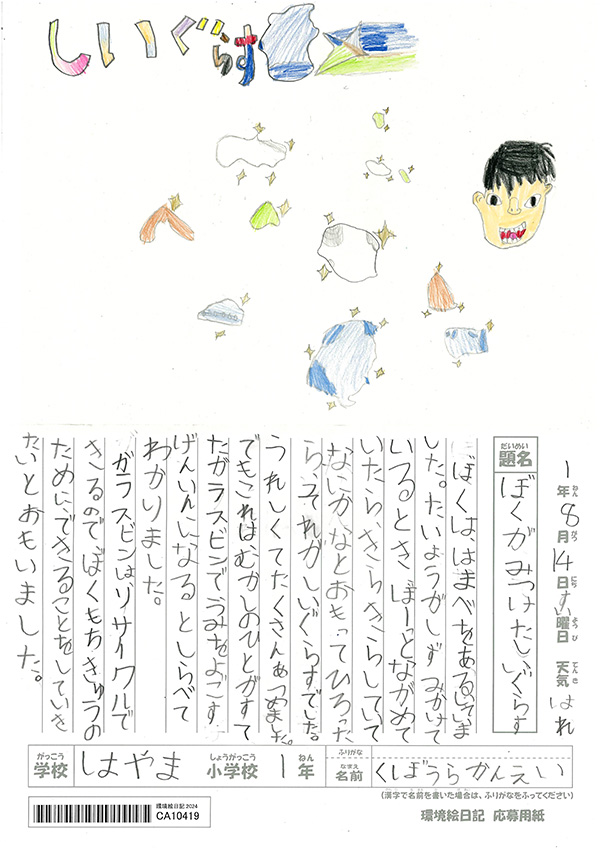 しいぐらす
1年8月14日すい曜日 天気 はれ
ねん がつ にち ようび てんき
だいめい
題名
ぼくがみつけたしいぐらす
ぼくは、はまべをあるいていま
した。たいようがしずみかけて
いるとき、ぼーっとながめて
いたら、きらきらしていて
なにかなとおもってひろった
ら、それがしいぐらすでした。
うれしくてたくさんあつめました。
でもこれは、むかしのひとがすて
たガラスビンでうみをよごす
げんいんになるとしらべて
わかりました。
ガラスビンは、リサイクルで
きるのでぼくもちきゅうの
ために、できることをしていき
たいとおもいました。
がっこう しょうがっこう ねん
学校 はやま 小学校 1年
ふりがな
なまえ
名前 くぼうらかんえい
(漢字で名前を書いた場合は、ふりがなをふってください)
環境絵日記 応募用紙
環境絵日記2024
CA10419